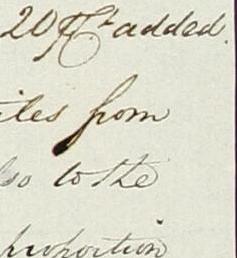 20 added.
iles from
lso to the
proportion